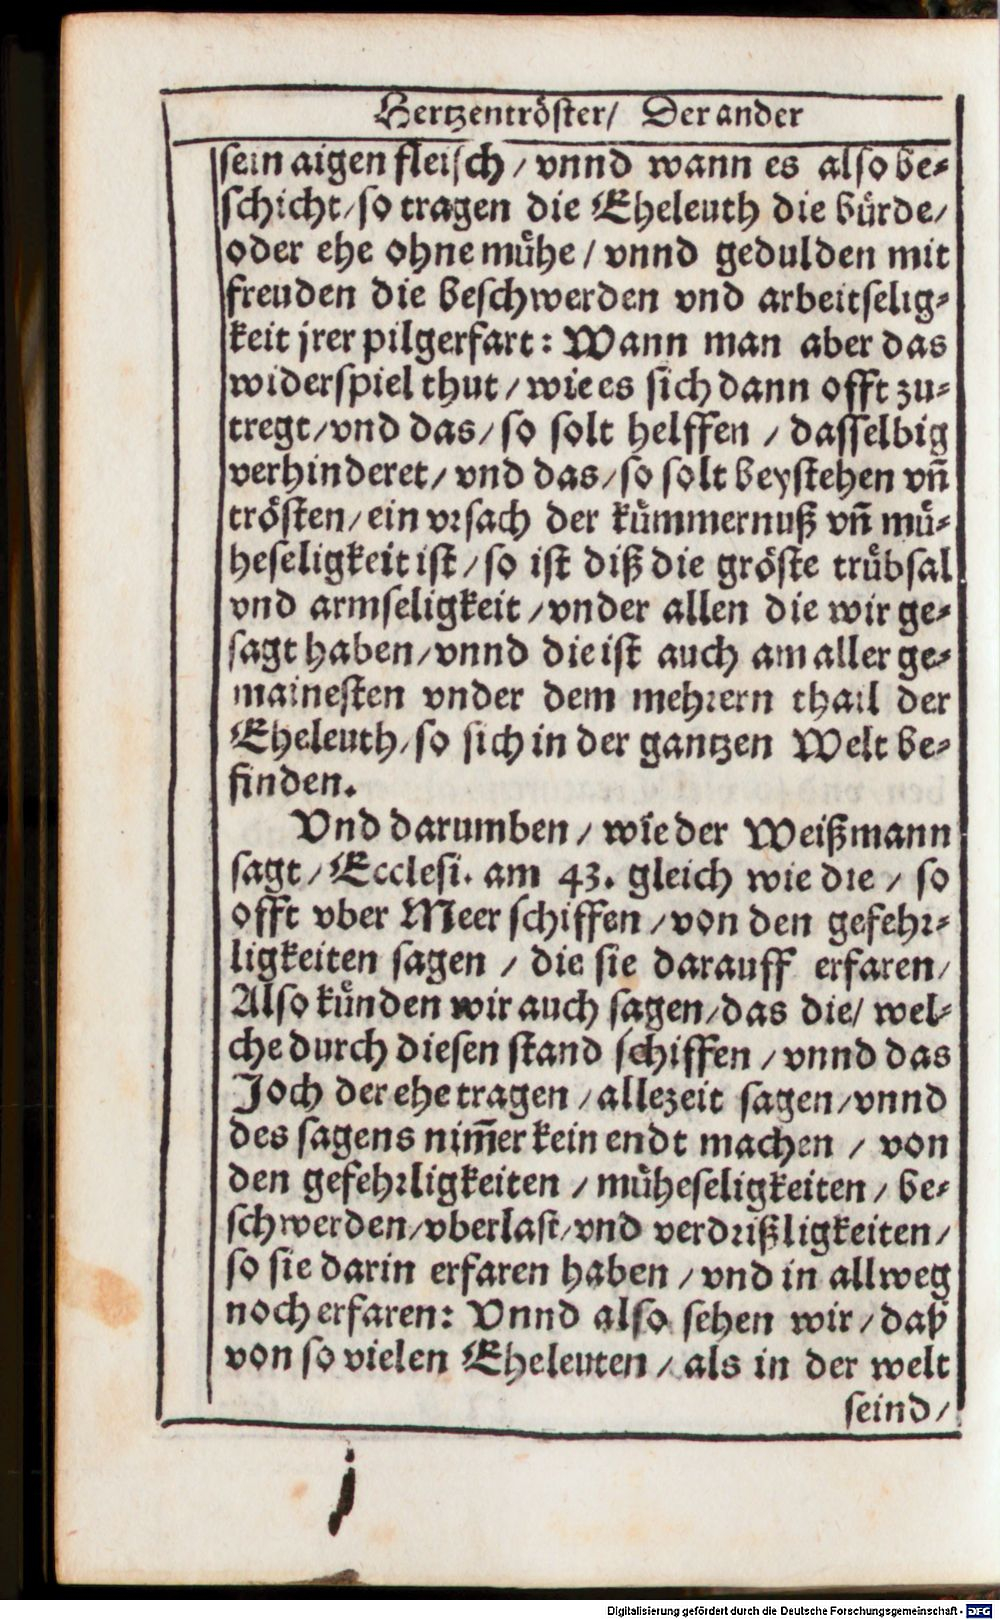 Hertzentröster/ Der ander
sein aigen fleisch / vnnd wann es also be⸗
schicht/ so tragen die Eheleuth die bürde/
oder ehe ohne mühe / vnnd gedulden mit
freuden die beschwerden vnd arbeitselig⸗
keit jrer pilgerfart: Wann man aber das
widerspiel thut / wie es sich dann offt zu⸗
tregt/ vnd das/ so solt helffen / dasselbig
verhinderet/ vnd das/ so solt beystehen vñ
trösten/ ein vrsach der kümmernuß vñ mü⸗
heseligkeit ist / so ist diß die gröste trübsal
vnd armseligkeit / vnder allen die wir ge⸗
sagt haben/ vnnd die ist auch am aller ge⸗
mainesten vnder dem mehrern thail der
Eheleuth/ so sich in der gantzen Welt be⸗
finden.
Vnd darumben / wie der Weißmann
sagt / Ecclesi. am 43. gleich wie die / so
offt vber Meer schiffen / von den gefehr⸗
ligkeiten sagen / die sie darauff erfaren/
Also künden wir auch sagen/ das die/ wel⸗
che durch diesen stand schiffen / vnnd das
Joch der ehe tragen / allezeit sagen/ vnnd
des sagens nim̄er kein endt machen / von
den gefehrligkeiten / müheseligkeiten / be⸗
schwerden/ vberlast/ vnd verdrißligkeiten/
so sie darin erfaren haben / vnd in allweg
noch erfaren: Vnnd also sehen wir / daß
von so vielen Eheleuten / als in der welt
seind/
Digitalisierung gefördert durch die Deutsche Forschungsgemeinschaft - DFG